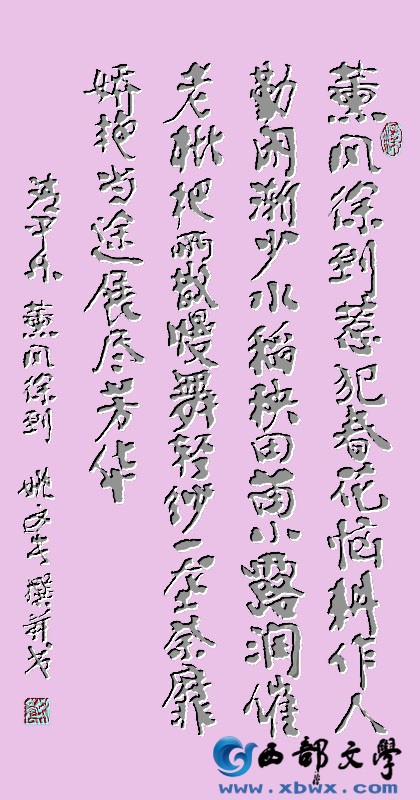 薰风徐到惹犯春花恼耕作人
勤闲渐少水稻秧田苗小露润催
老枇杷雨散慢舞轻纱一座荼靡
娇艳当途展尽芳华
清平乐 薰风徐到 姚 撰并书
西部文學
www.xbwx.com